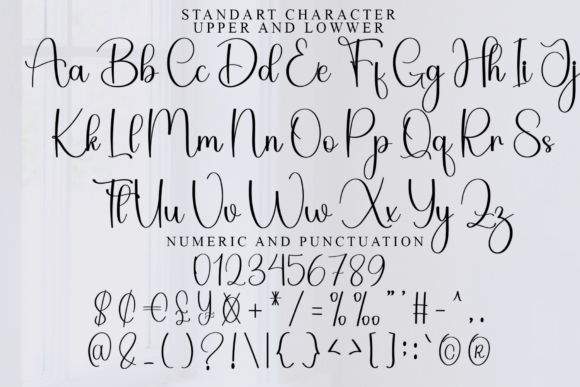 STANDART CHARACTER
UPPER AND LOWWER
Aa Bb Cc Dd Ee Ff Gg Hh Ii Jj
Kk Ll Mm Nn Oo Pp Qq Rr Ss
Tt Uu Vv Ww Xx Yy Zz
NUMERIC AND PUNCTUATION
0123456789
$ ₵ € £ ¥ ¤ + * / = % ‰ " ' # - ^ , .
@ & _ ( ) ? ! \ | { } < > [ ] : ; ` © ®